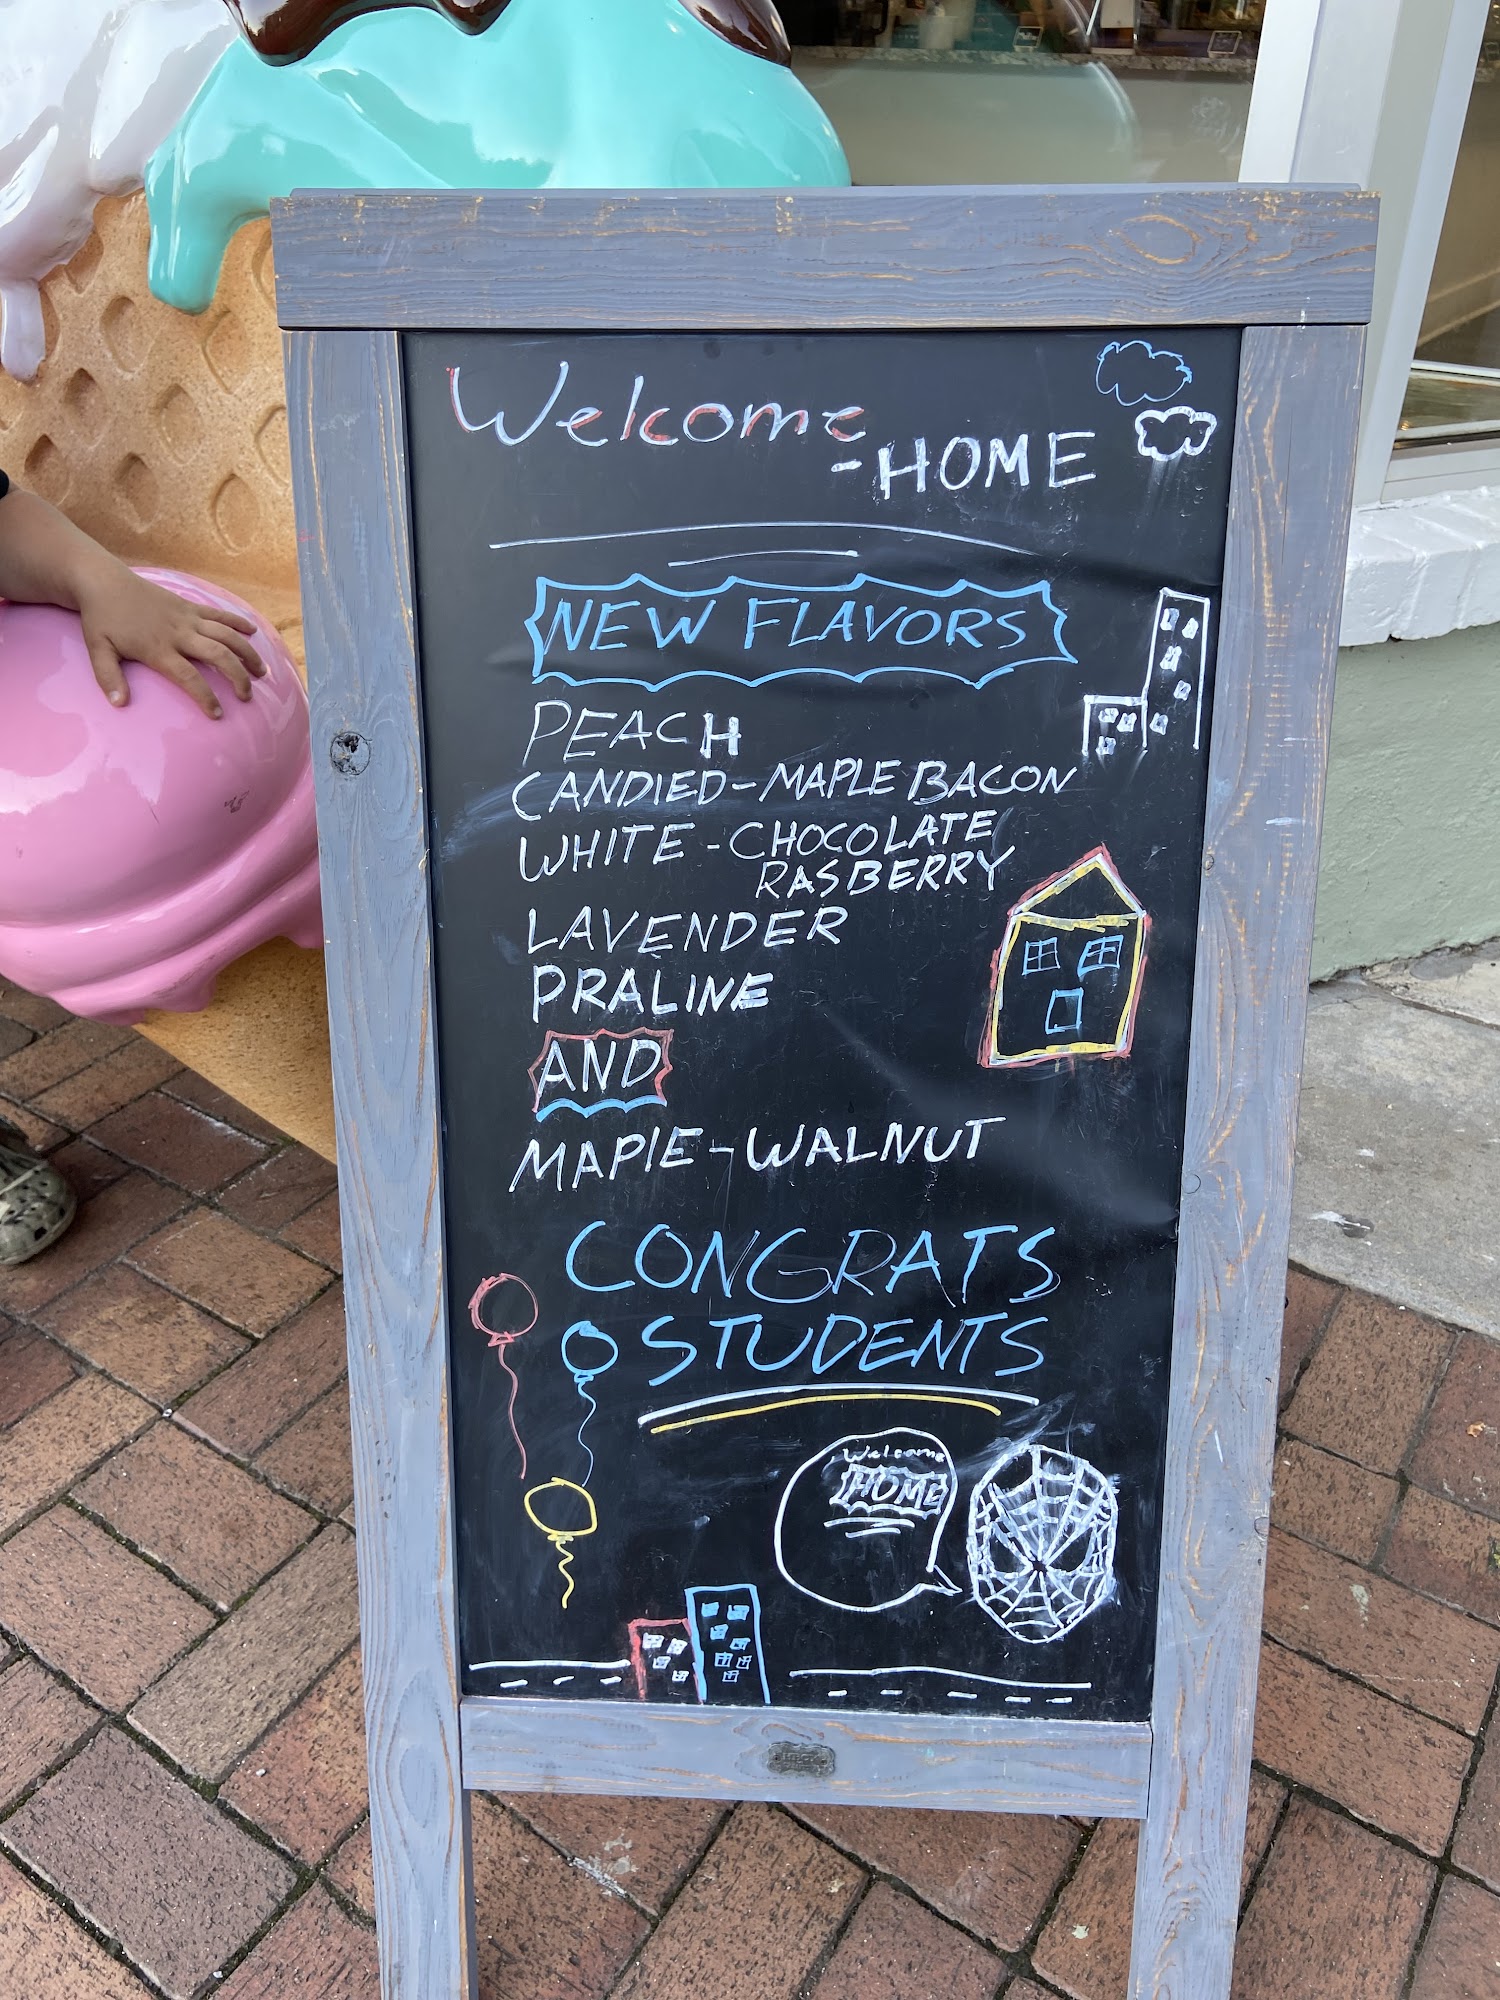 Welcome
-HOME
NEW FLAVORS
PEACH
CANDIED-MAPLE BACON
WHITE-CHOCOLATE
RASBERRY
LAVENDER
PRALINE
AND
MAPlE-WALNUT
CONGRATS
STUDENTS
Welcome
HOME